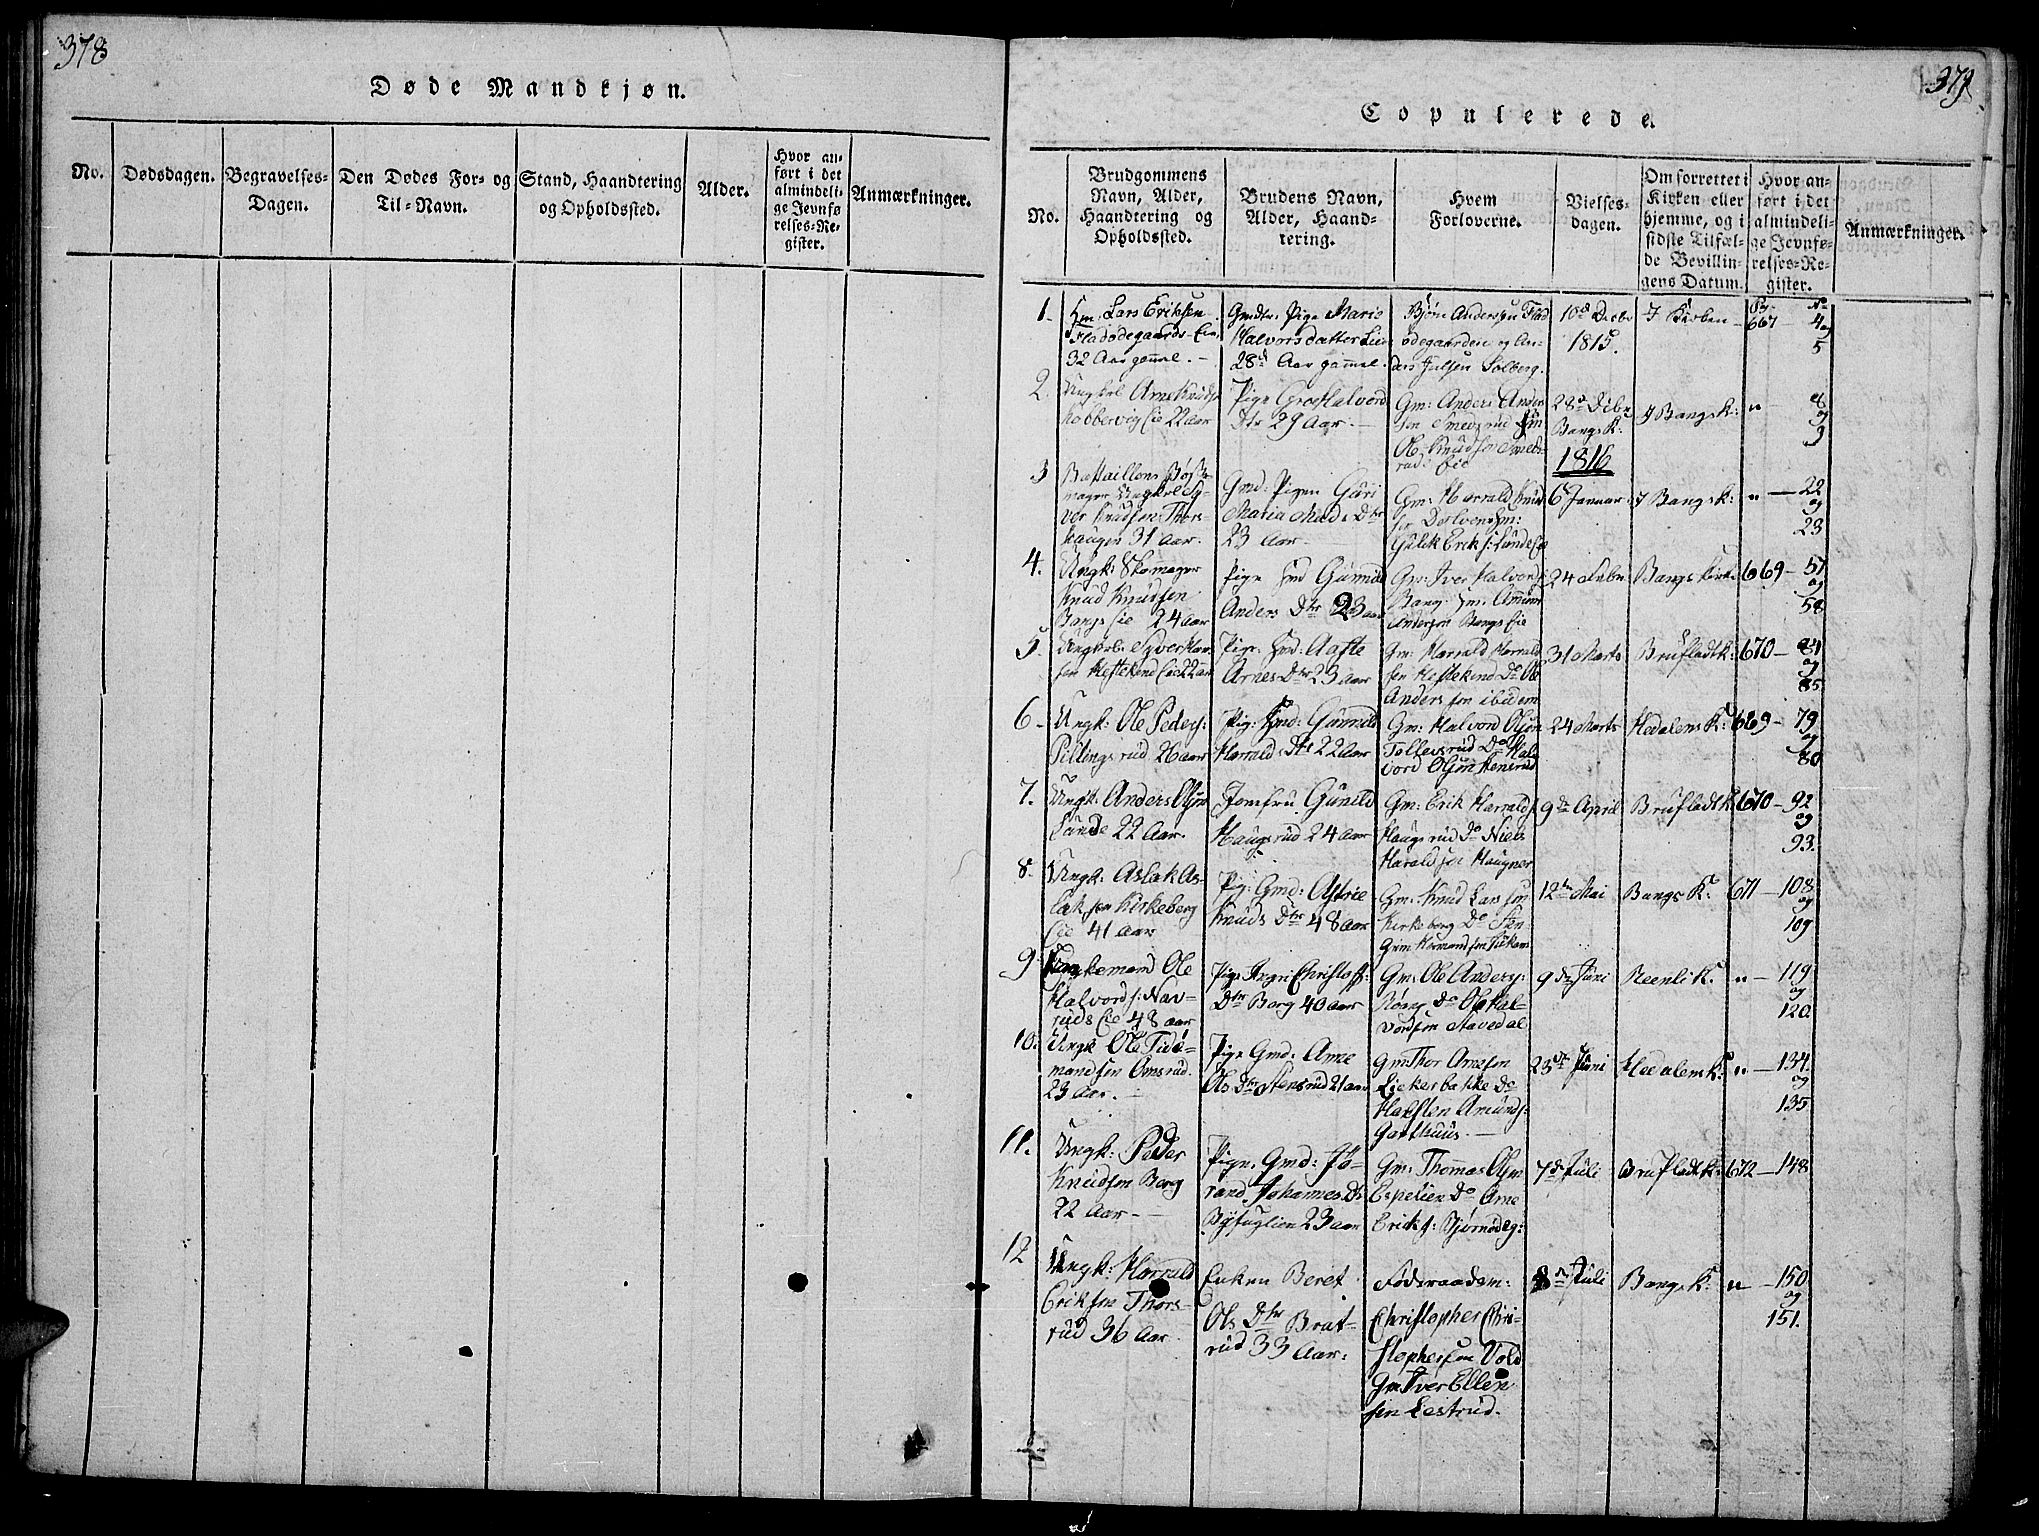 378
Døde Mandkjøn.
No.
Dødsdagen.
Begravelses-
Dagen.
Den Dødes For- og
Til-Navn.
Stand, Haandtering
og Opholdssted.
Alder.
Hvor an-
ført i det
almindeli-
ge Jevnfø
relses-Re-
gister.
Anmærkninger.
379
Copulerede.
No.
Brudgommens
Navn, Alder,
Haandtering og
Opholdssted.
Brudens Navn,
Alder, Haand-
tering.
Hvem
Forloverne.
Vielses-
dagen.
Om forrettet i
Kirken eller
hjemme, og i
sidste Tilfæl-
de Bevillin-
gens Datum.
Hvor an-
ført i det
almindeli-
ge Jevnfø-
relses-Re-
gister.
Anmærkninger.
1.
Em. Lars Eriksen
Fladødegaards-Eie,
32 Aar gamel. -
Gmdtr. Pige Marie
Halvorsdatter Lien
28 Aar gammel.
Bjørn Andersen Flad
ødegaarden og An-
ders Julsen Solberg.
10d Decbr
1815.
I Kirken
667 - 4
og
5
2.
Ungkrl Arne Knuds
Kobbervig Eie 22 aar
Pige Gro Halvord
Dtr 29 Aar. -
Gm: Anders Anders
sen Smedsrud Hm
Ole Knudsen Smeds-
rud Eie
28d Decbr
Bangs K.
I Bangs K:
" - 8
og
9
1816
3
Battaillons Bøsse
mager Ungkrl Sy-
ver Knudsen Thors-
haugen 31 Aar.
Gmd: Pigen Guri
Maria Mads Dtr
23 Aar -
Gm: Harrald Knud
sen
Gulik Erik s: Lunde
6 Januar
I Bangs K:
" - 22
og
23
4.
Ungk: Skomager
Knud Knudsen
Bangs Eie 24 aar
Pige Gmd Gunnild
Anders Dtr 23 aar
Gm: Iver Halvords:
Bang Hm. Ammun
Andersen Bangs Eie
24 Febr
Bangs Kirke
669 - 57
og
58
5.
Ungkrl: Syver Har
sen Heftekind Eie 22 aar
Pige Gmd: Aaste
Arnes Dtr 23 aar
Gm: Harrald Harrald
sen Heftekind Do Ole
Anders sen ibidem
31 Marts
Brufladt K:
670 - 84
og
85
6 -
Ungk: Ole Peders:
Pillingsrud 26 aar
Pig: Gmd: Gunnild
Harralds Dtr 22 Aar
Gm: Halvord Olsøn
Tollevsrud Do Hal
vord Olsøn Stensrud
24 Marts
Hedalens K:
669 - 79
og
80
7.
Ungk: Anders Olsøn
Lunde 22 Aar.
Jomfru Gunild
Haugsrud 24 aar
Gm: Erik Harrald s
Haugsrud Do Niels
Haraldsen Haugner
9de April
Brufladt K:
670 - 92
og
93.
8.
Ungk: Aslak As-
laksen Kirkeberg
Eie 41 aar
Pig: Gmd: Astrie
Knuds Dtr 48 aar
Gm: Knud Larssøn
Kirkeberg Do Sten
Grim
12te Mai
Bangs K:
671 - 108
og
109
9
Enkemand Ole
Halvords: Nav-
ruds Eie 48 aar
Pige Ingri Christoff:
Dtr Berg 40 aar
Gm: Ole Anders:
Do Ole Hal-
vordsen Stavedal
9de Juni
Reenli K.
" - 119
og
120
10.
Ungk Ole Tide-
mandsen Omsrud.
23 Aar. -
Pige Gmd: Arne
Ols Dtr Stensrud 21 aar
Gm: Thor Arnesen
Liekerbakke Do
Halsten Amunds:
Garthuus. -
23de Juni
Hedalens K:
" - 134.
og
135
11.
Ungk: Peder
Knudsen Berg
22 Aar -
Pige. Gmd: Jø-
rand Johannes Dr
Byfuglien 23 aar
Gm: Thommas Olsøn
Espelien Do Arne
Erick s: Bjørnødeg:
7de Juli
Brufladt K:
672 - 148
12
Ungk: Harrald
Eriksen Thors-
rud 36 Aar.
Enken Beret
Ols Dtr Brat-
rud 33 Aar.
Fødsraadsm:
Christopher Chri-
stophersen Vold
Gm: Iver Ellen
sen Lestrud.
8de Juli
Bangs K:
" - 150
og
151.